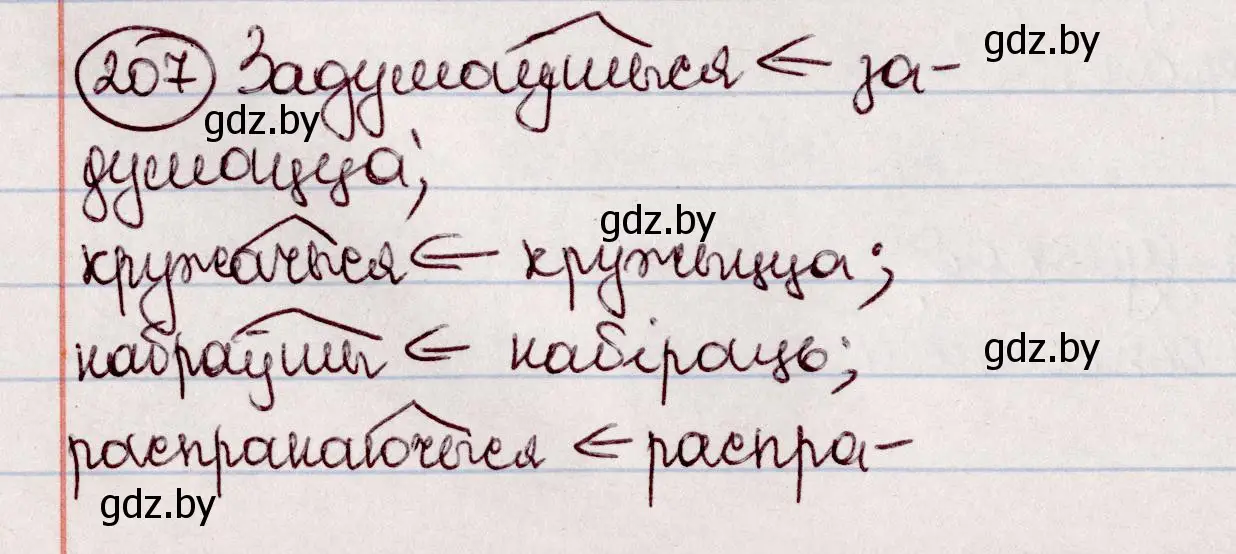 207 Задумаўшыся ← за-
gdz.by
gdz.by
думацца;
gdz.by
кружачыся ← кружыцца;
набраўшы ← набіраць;
gdz.by
распранаючыся ← распра-
gdz.by